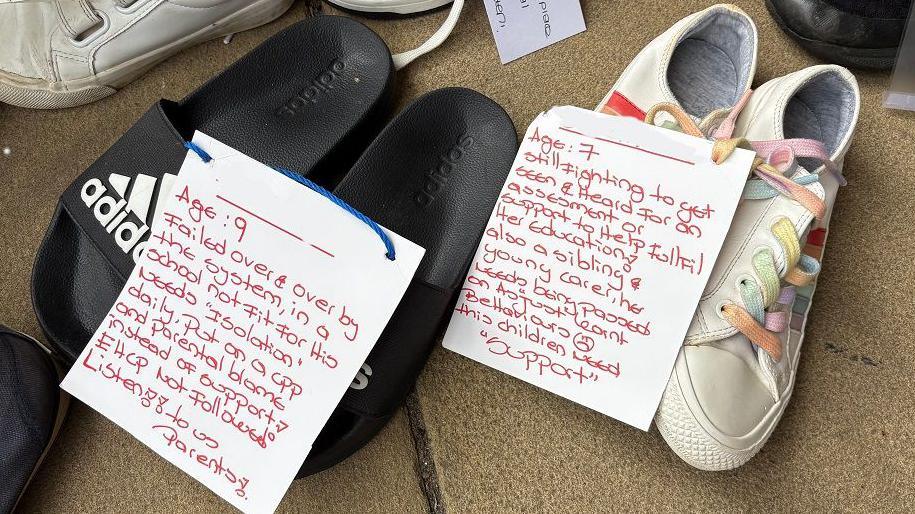 adidas
adidas
adidas
Age: 9
Failed over & over by
the system, in a
school not fit for his
needs "Isolation"
daily, Put on a CPP
and Parental blame
instead of support?
EHCP Not followed
Listen to us
Parents
Age: 7
still Fighting to get
seen & Heard for an
assesment or
support to Help fullfil
Her Education?
also a sibling &
young carer, her
needs being passed
on As "Just learnt
Behaviours"
this children need
"support"